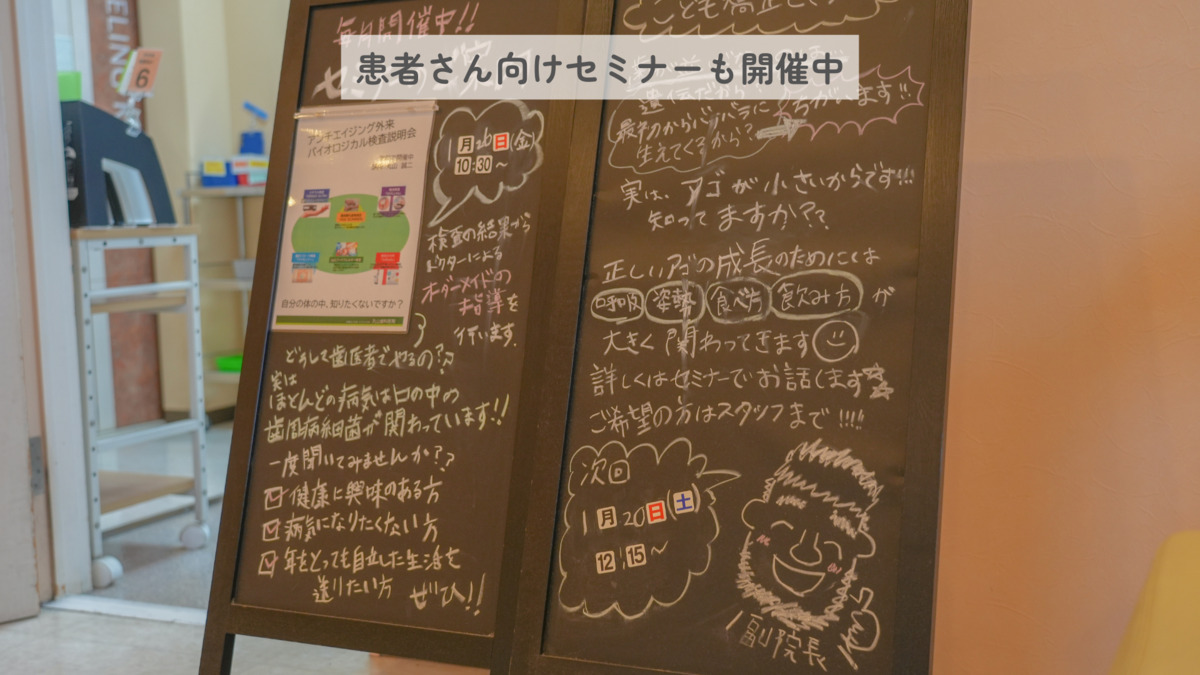 患者さん向けセミナーも開催中
毎月開催中!!
アンチエイジング外来
バイオロジカル検査説明会
自分の体の中、知りたくないですか？
1月26日(金)
10:30～
検査の結果から
ドクターによる
オーダーメイドの
指導を
行います。
どうして歯医者でやるの??
実は
ほとんどの病気は口の中の
歯周病細菌が関わっています!!
一度聞いてみませんか??
健康に興味のある方
病気になりたくない方
年をとっても自立した生活を
送りたい方 ぜひ!!
こども矯正
遺伝だから?
最初からバラバラに
生えてくるから?
ちがいます!!
実は、アゴが小さいからです!!!
知ってますか??
正しいアゴの成長のためには
呼吸 姿勢 食べ方 飲み方 が
大きく関わってきます
詳しくはセミナーでお話します
ご希望の方はスタッフまで!!!!
次回
1月20日(土)
12:15～
副院長
6